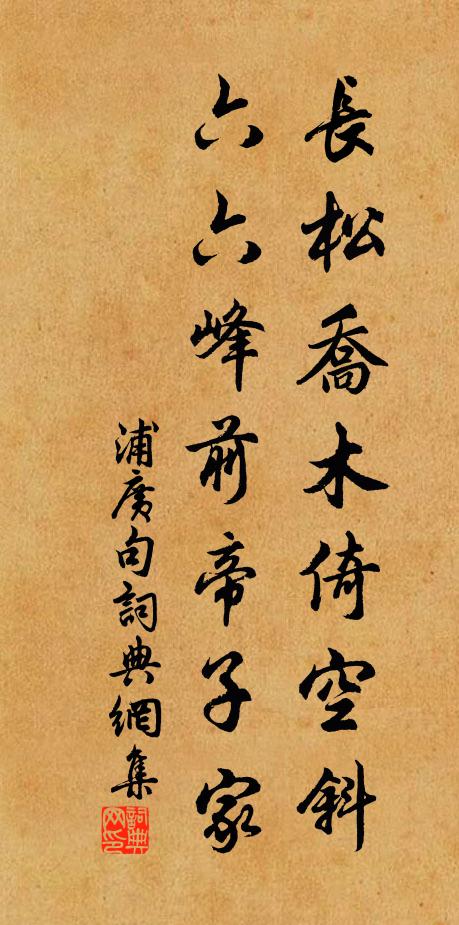 長松喬木倚空斜
六六峰前帝子家
浦廣句詞典網集
詞典网印